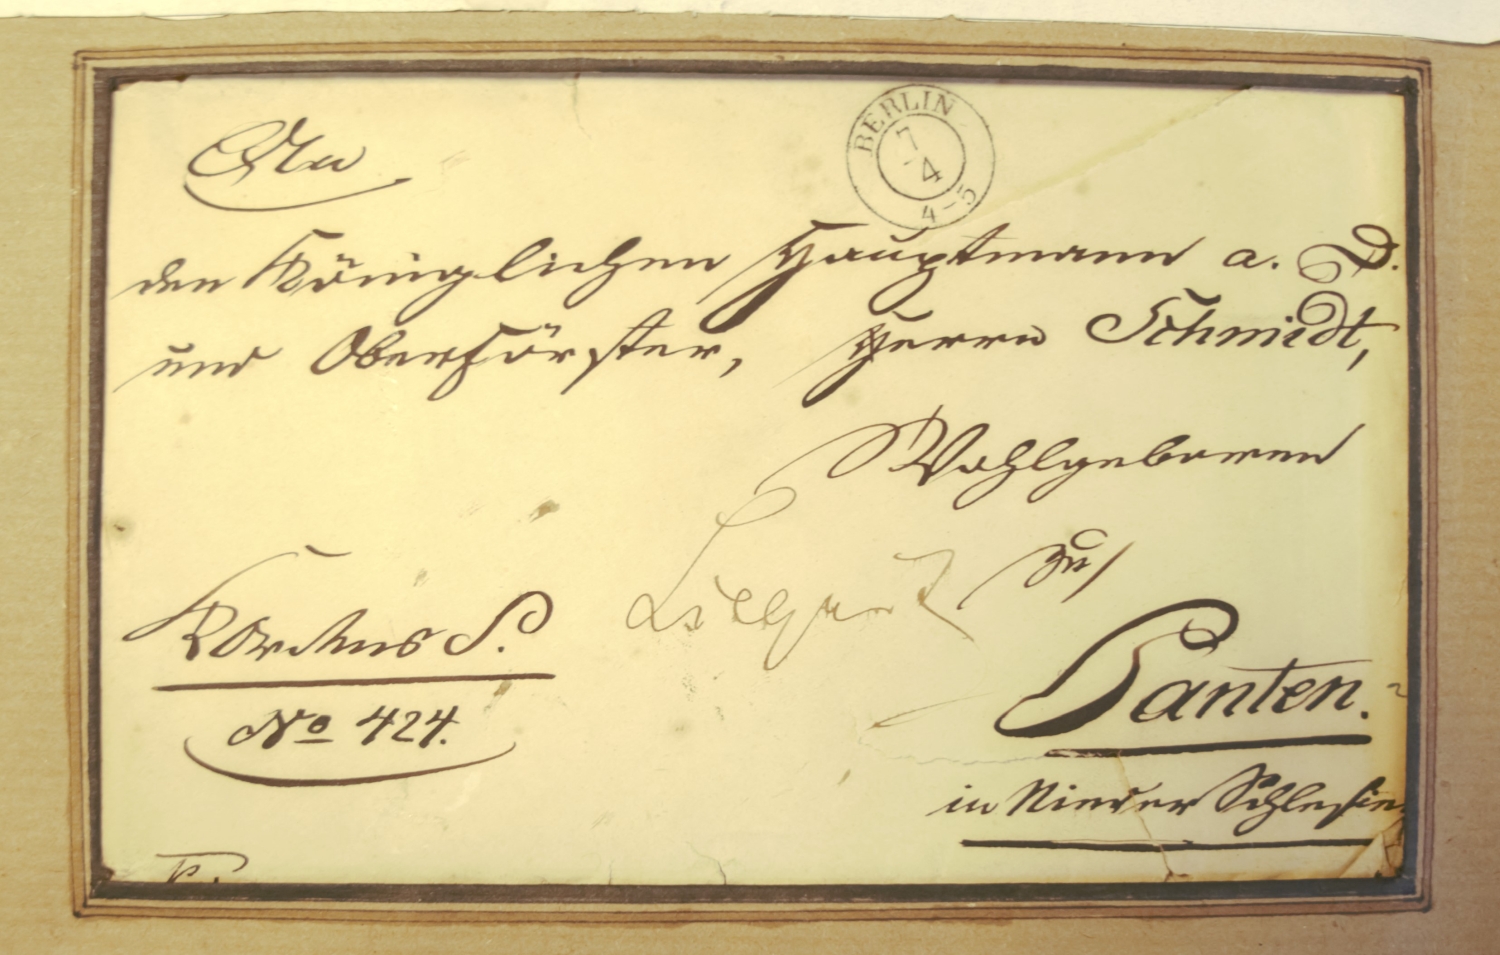 BERLIN
7
4
4-5
An
den Königlichen Hauptmann a. D.
und Oberförster, Herrn Schmidt,
Wohlgeboren
zu
Liegnitz
Panten.
in Nieder Schlesien
S.
No 424.